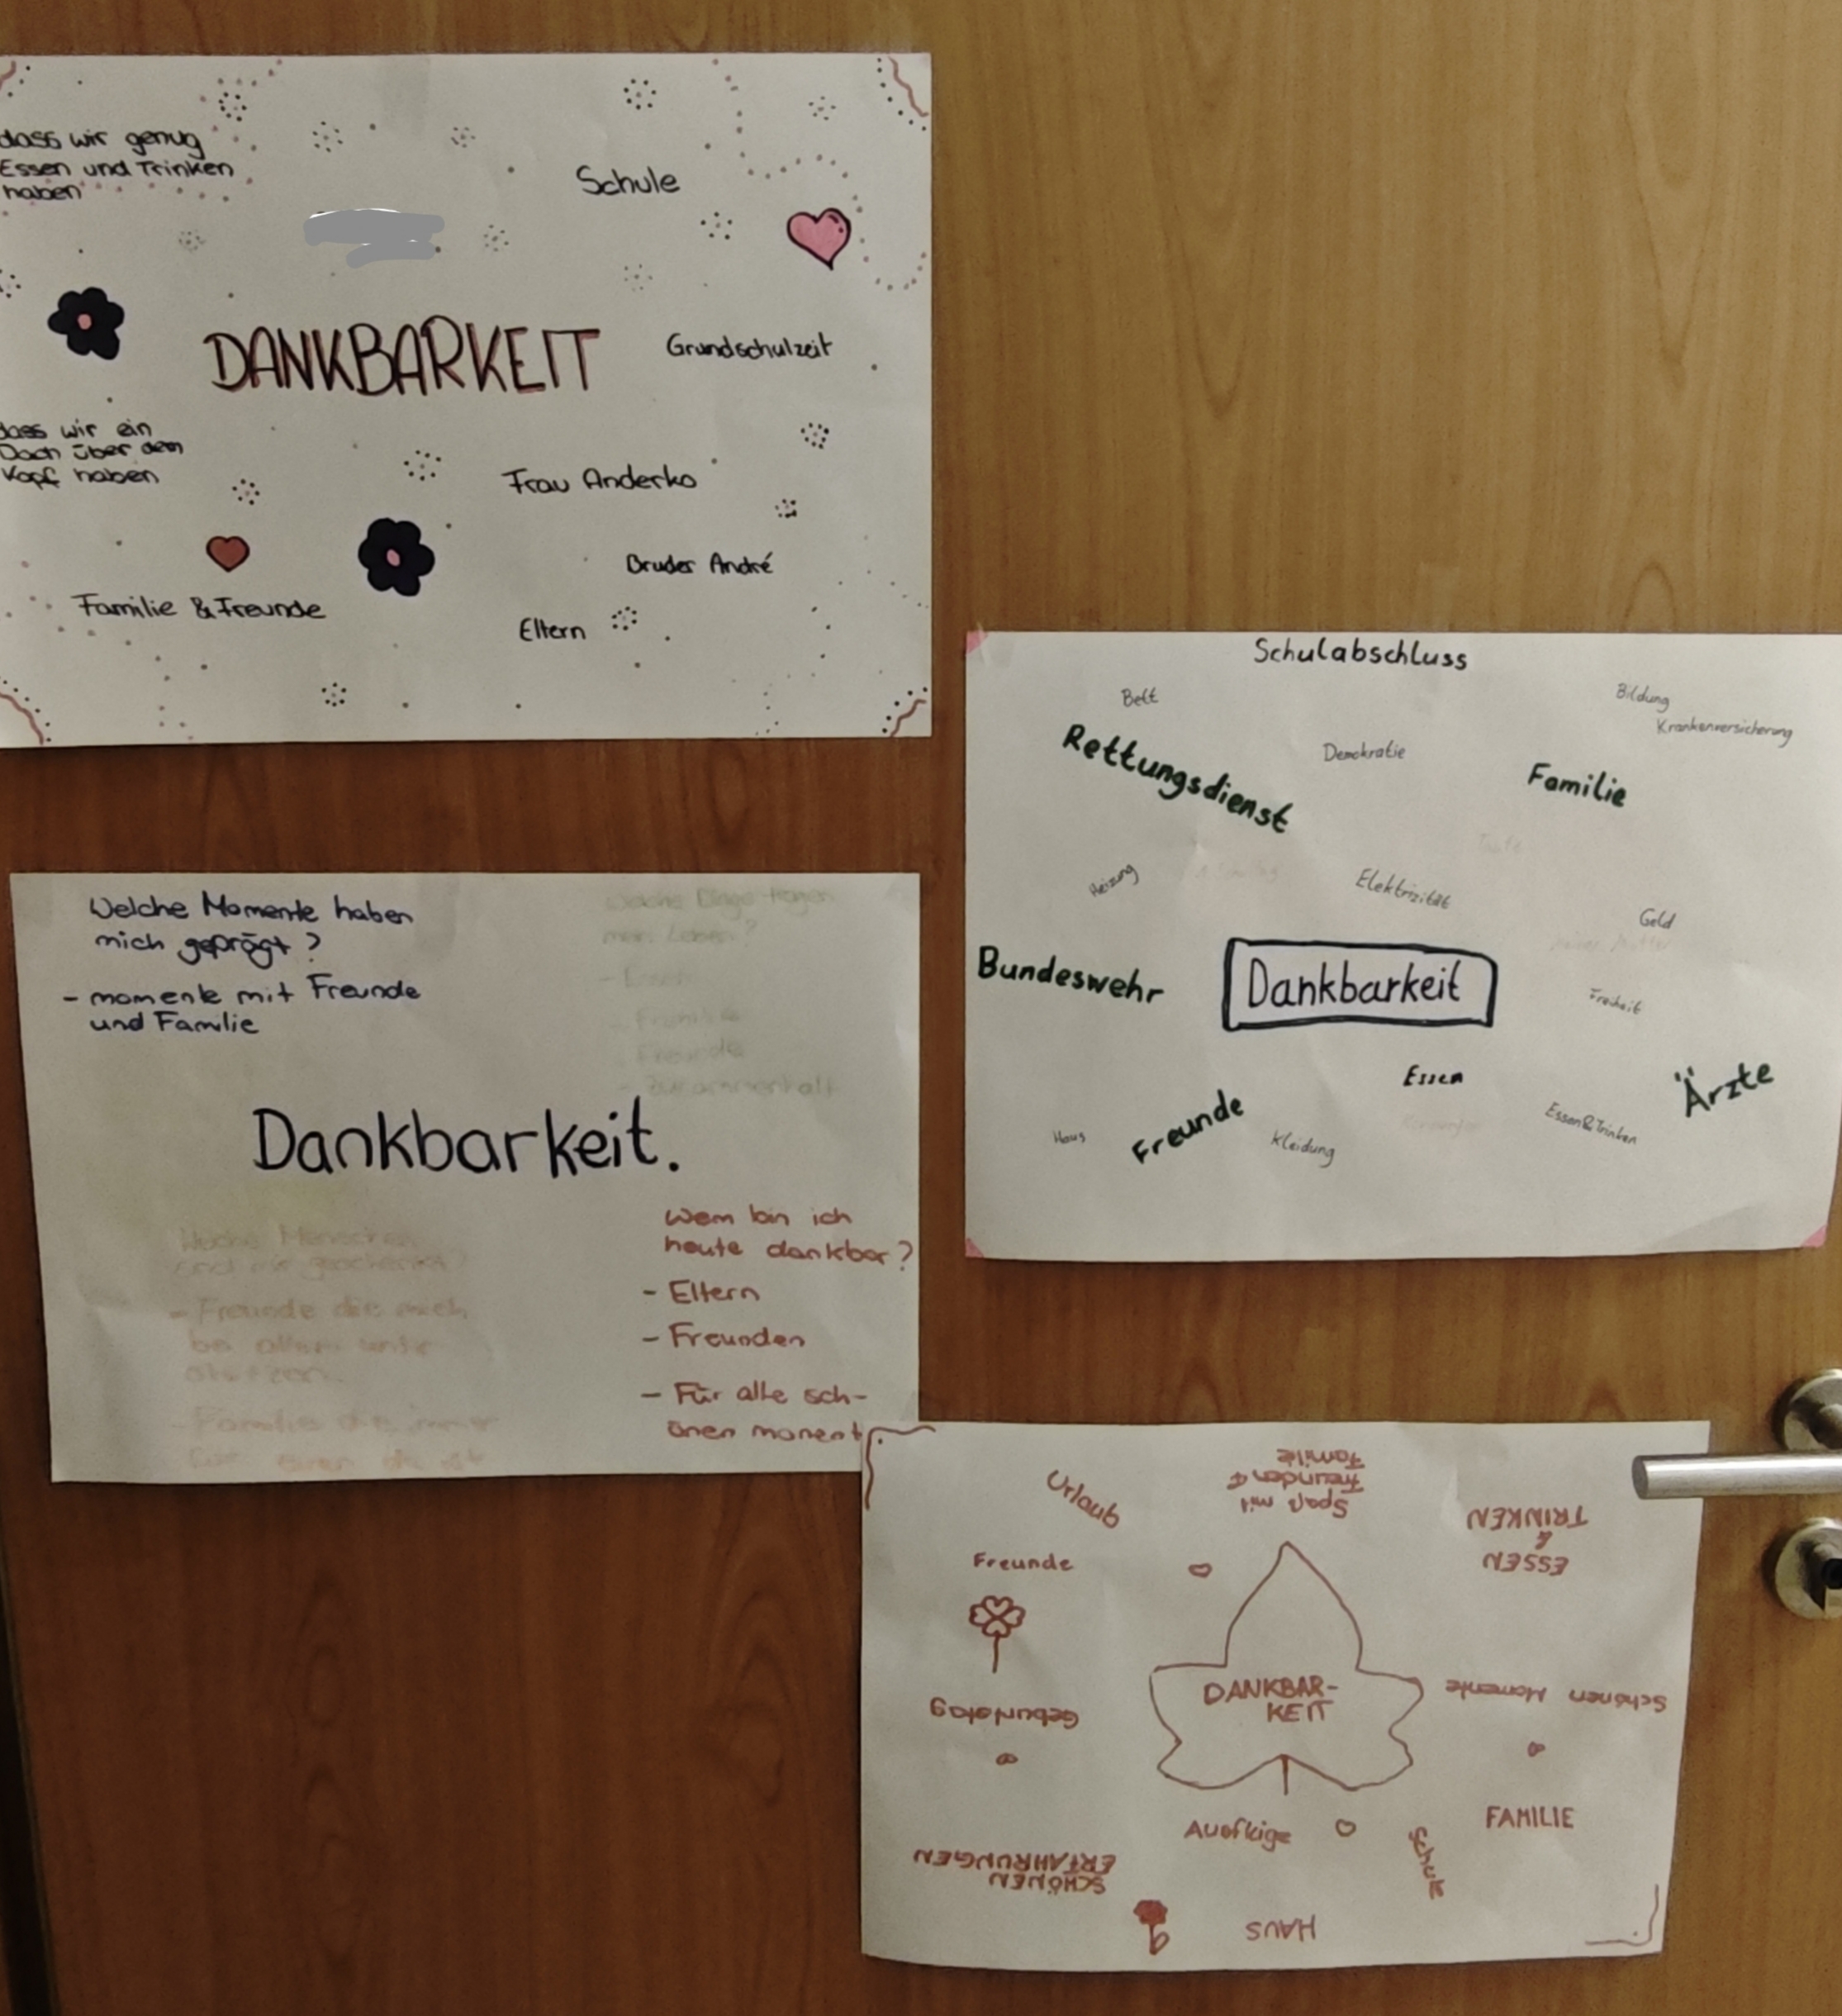 dass wir genug
Essen und Trinken
haben
Schule
DANKBARKEIT
Grundschulzeit
dass wir ein
Dach über dem
Kopf haben
Frau Anderko
Bruder André
Familie & Freunde
Eltern
Schulabschluss
Bett
Bildung
Krankenversicherung
Rettungsdienst
Demokratie
Familie
Heizung
Elektrizität
Geld
Bundeswehr
Dankbarkeit
Freiheit
Essen
Ärzte
Freunde
Haus
Kleidung
Essen&Trinken
Welche Momente haben
mich geprägt?
- momente mit Freunde
und Familie
Welche Dinge tragen
mein Leben?
- Essen
- Familie
- Freunde
- Zusammenhalt
Dankbarkeit.
- Freunde die mich
- Familie die immer
Wem bin ich
heute dankbar?
- Eltern
- Freunden
- Für alle sch-
önen moment
Urlaub
Spaß mit
Freunden &
Familie
ESSEN
&
TRINKEN
Freunde
DANKBAR-
KEIT
Schönen Momente
Geburtstag
Ausflüge
Schule
FAMILIE
SCHÖNEN
ERFAHRUNGEN
HAUS